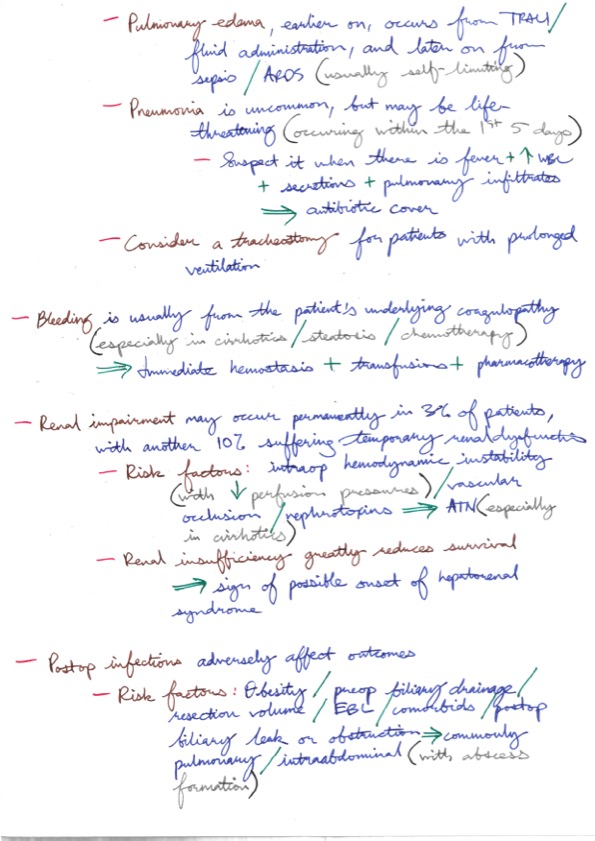 — Pulmonary edema, earlier on, occurs from TRALI/
fluid administration, and later on from
sepsis / ARDS (usually self-limiting)
— Pneumonia is uncommon, but may be life-
threatening (occuring within the 1st 5 days)
— Suspect it when there is fever + ↑ WBC
+ secretions + pulmonary infiltrates
⇒ antibiotic cover
— Consider a tracheostomy for patients with prolonged
ventilation
— Bleeding is usually from the patient's underlying coagulopathy
(especially in cirrhotics / steatosis / chemotherapy)
⇒ Immediate hemostasis + transfusions + pharmacotherapy
— Renal impairment may occur permanently in 3% of patients,
with another 10% suffering temporary renal dysfunction
— Risk factors: intraop hemodynamic instability
(with ↓ perfusion pressures) / vascular
occlusion / nephrotoxins ⇒ ATN (especially
in cirrhotics)
— Renal insufficiency greatly reduces survival
⇒ sign of possible onset of hepatorenal
syndrome
— Postop infections adversely affect outcomes
— Risk factors: Obesity / preop biliary drainage /
resection volume / EBL / comorbids / postop
biliary leak or obstruction ⇒ commonly
pulmonary / intraabdominal (with abscess
formation)